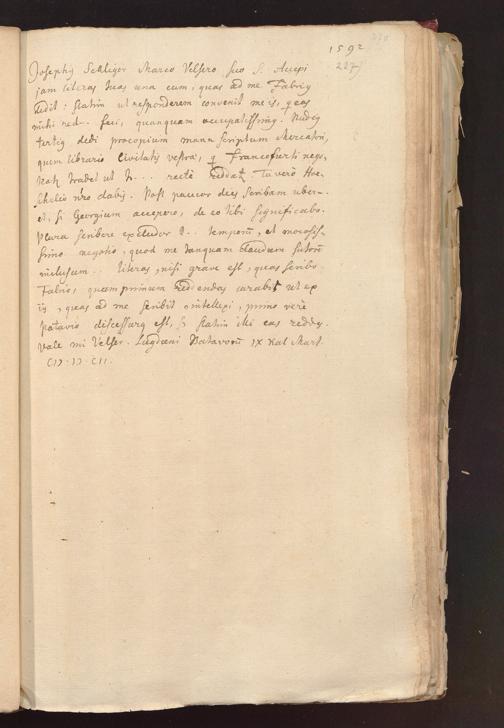 1592
227
Josephus Scaliger Marco Velsero suo S. Accepi
jam literas tuas una cum, quas ad me Fabrig
dedit: statim ut responderem convenit meis, qas
mihi red.. feci, quanquam occupatissimg. Nudig
tertig dedi procopium manu scriptum Mercatori,
quem librario Civitatis vestræ, q Francofurti nego-
tiat, tradet ut h... recte reddat. Tu vero Hoe-
schelio nro dabis. Post paucos dies scribam uber-
et, si Georgium accepero, de eo tibi significabo.
Plura scribere excludor temporum, et morosis-
simo negotio, quod me tanquam claudum sutorem
inclusum.. literas, nisi grave est, quas scribo
Fabrio, quamprimum reddendas curabis ut ex
iis, quas ad me scribit intellexi, primo vere
patavio discessurg est, statim illi eas reddes.
Vale mi Velser. Lugduni Batavorum IX Kal Mart.
CIↃ.IↃ.CII.